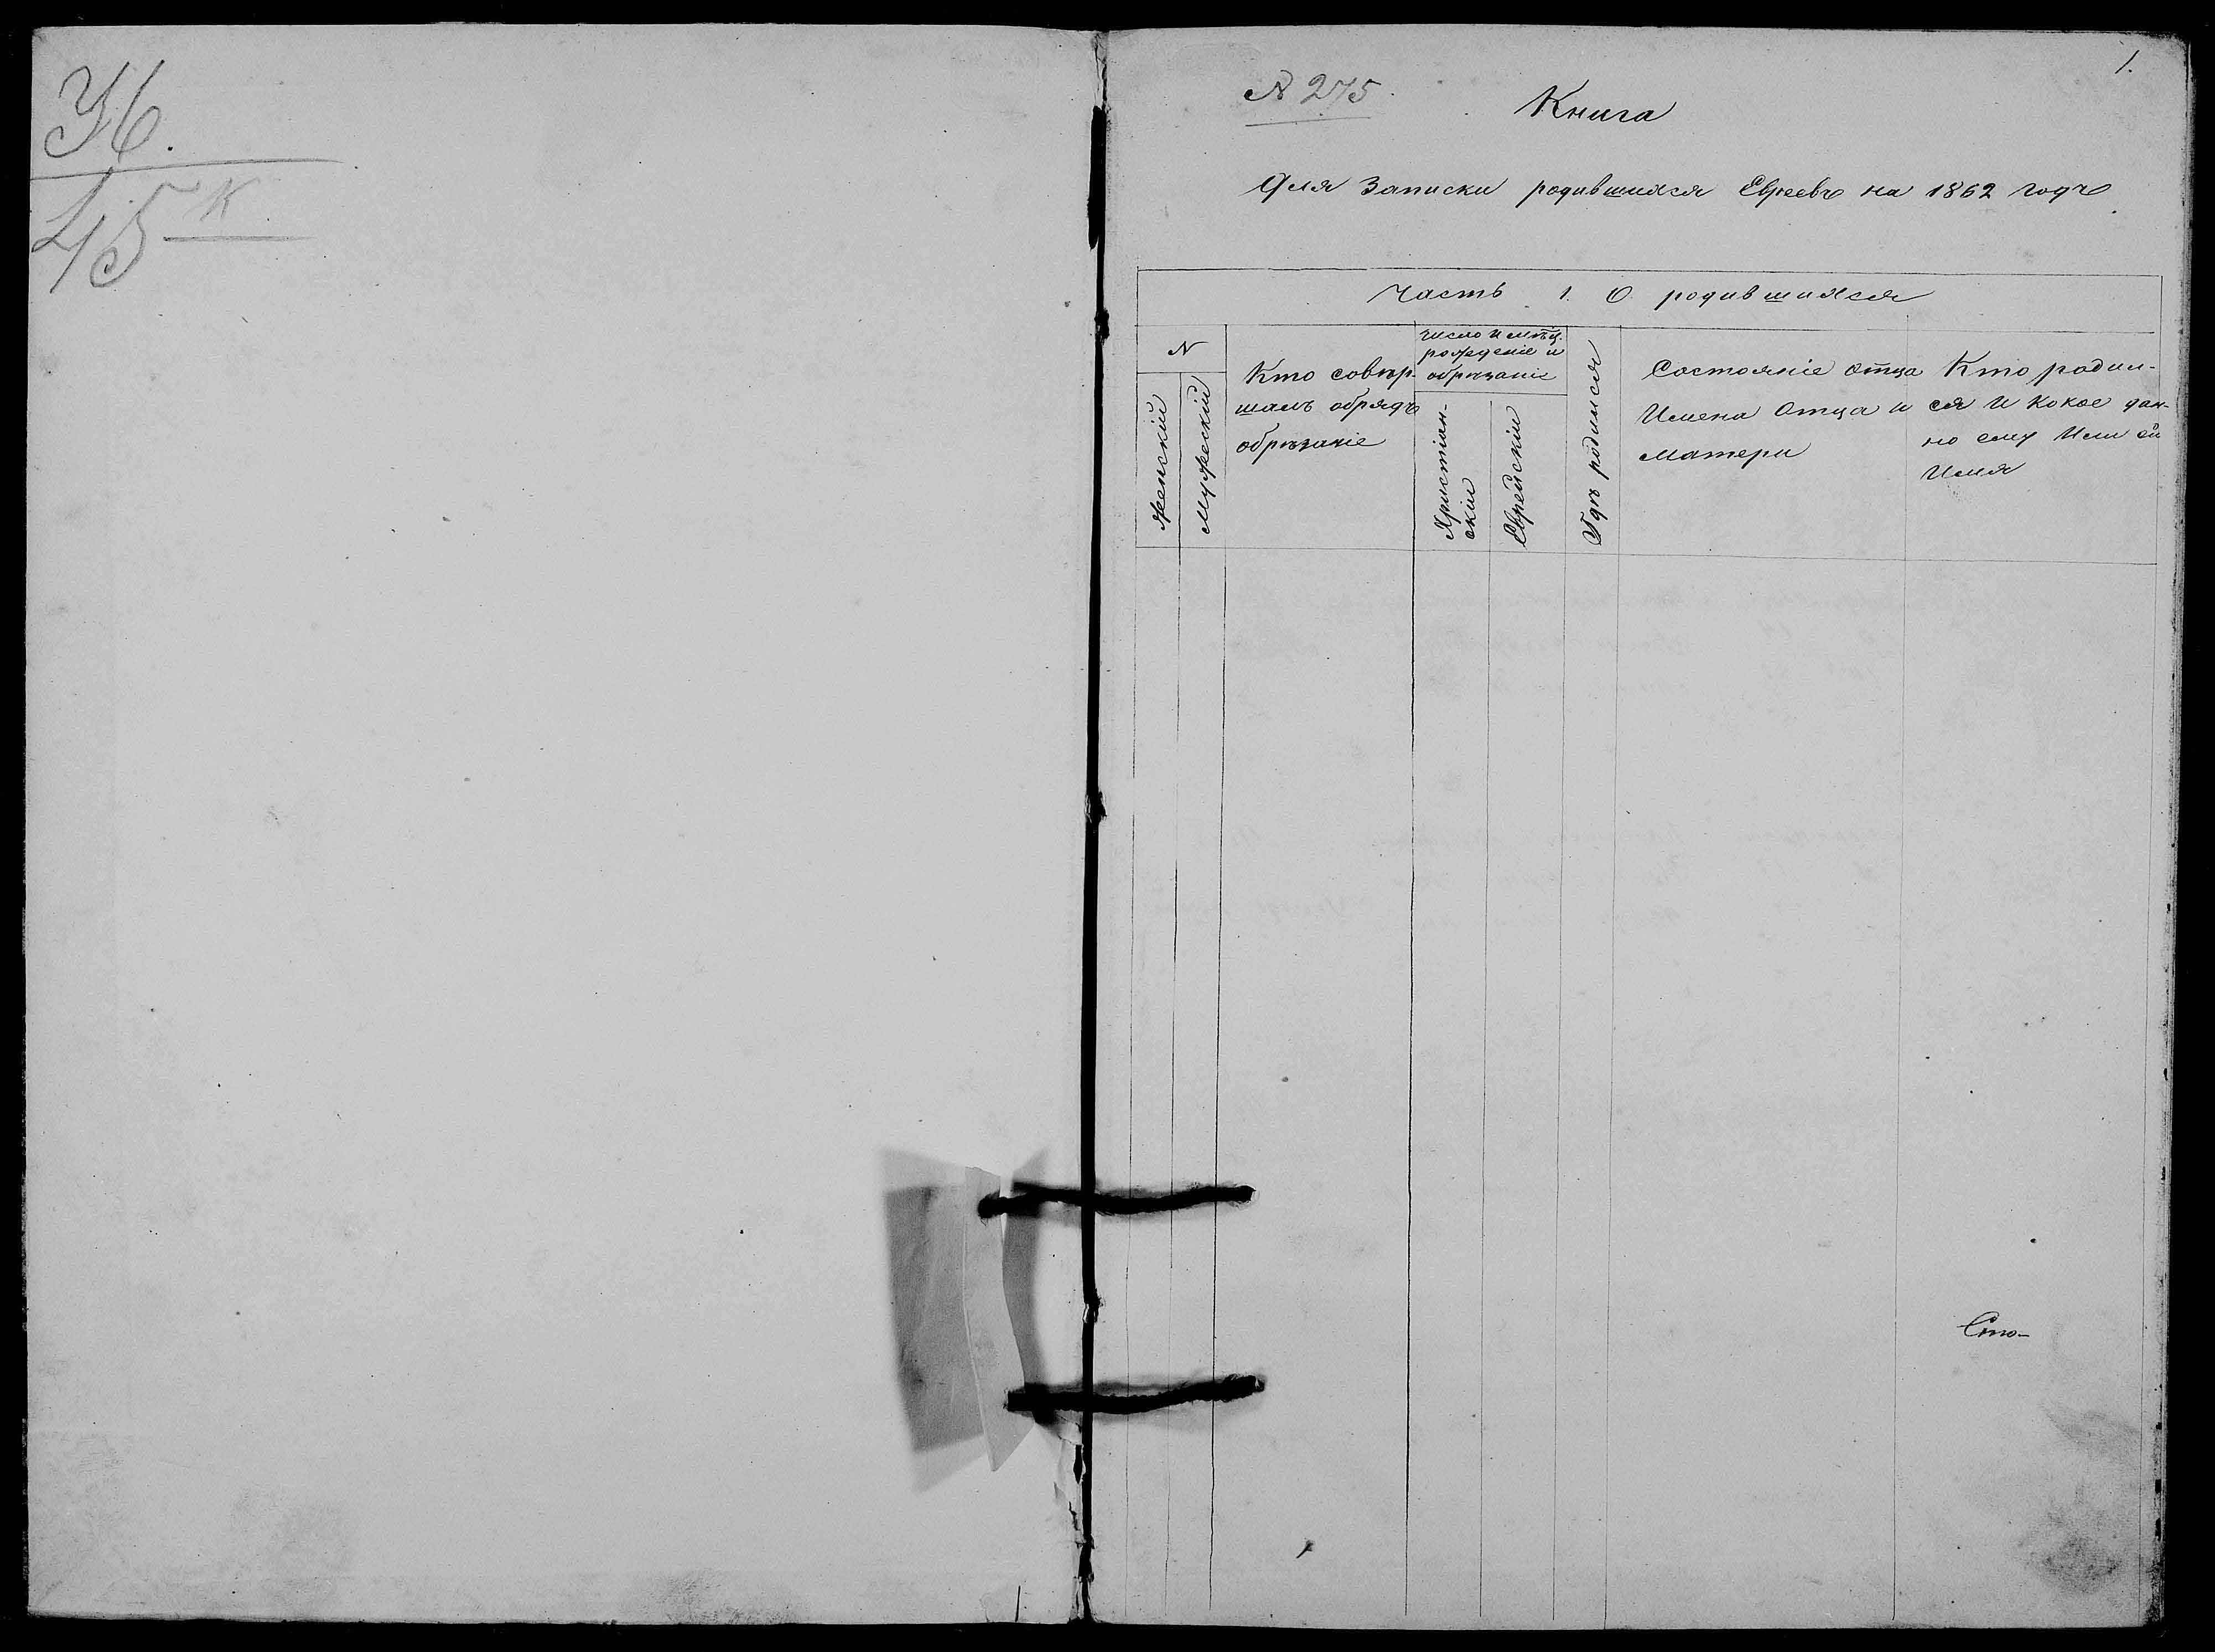 У6.
45 к
№ 275.
1.
Книга
Для Записки родившихся Евреевъ на 1862 годъ
Часть 1. О родившихся
N
женскій
Мужескій
Кто совѣр-
шалъ обрядъ
обрѣзаніе
число и мѣсц.
рожденіе и
обрѣзаніе
Христіан-
скій
Еврейскій
Гдѣ родился
Состояніе отца
Имена Отца и
Матери
Кто родил-
ся И какое дан-
но ему Или ей
Имя
Сто-